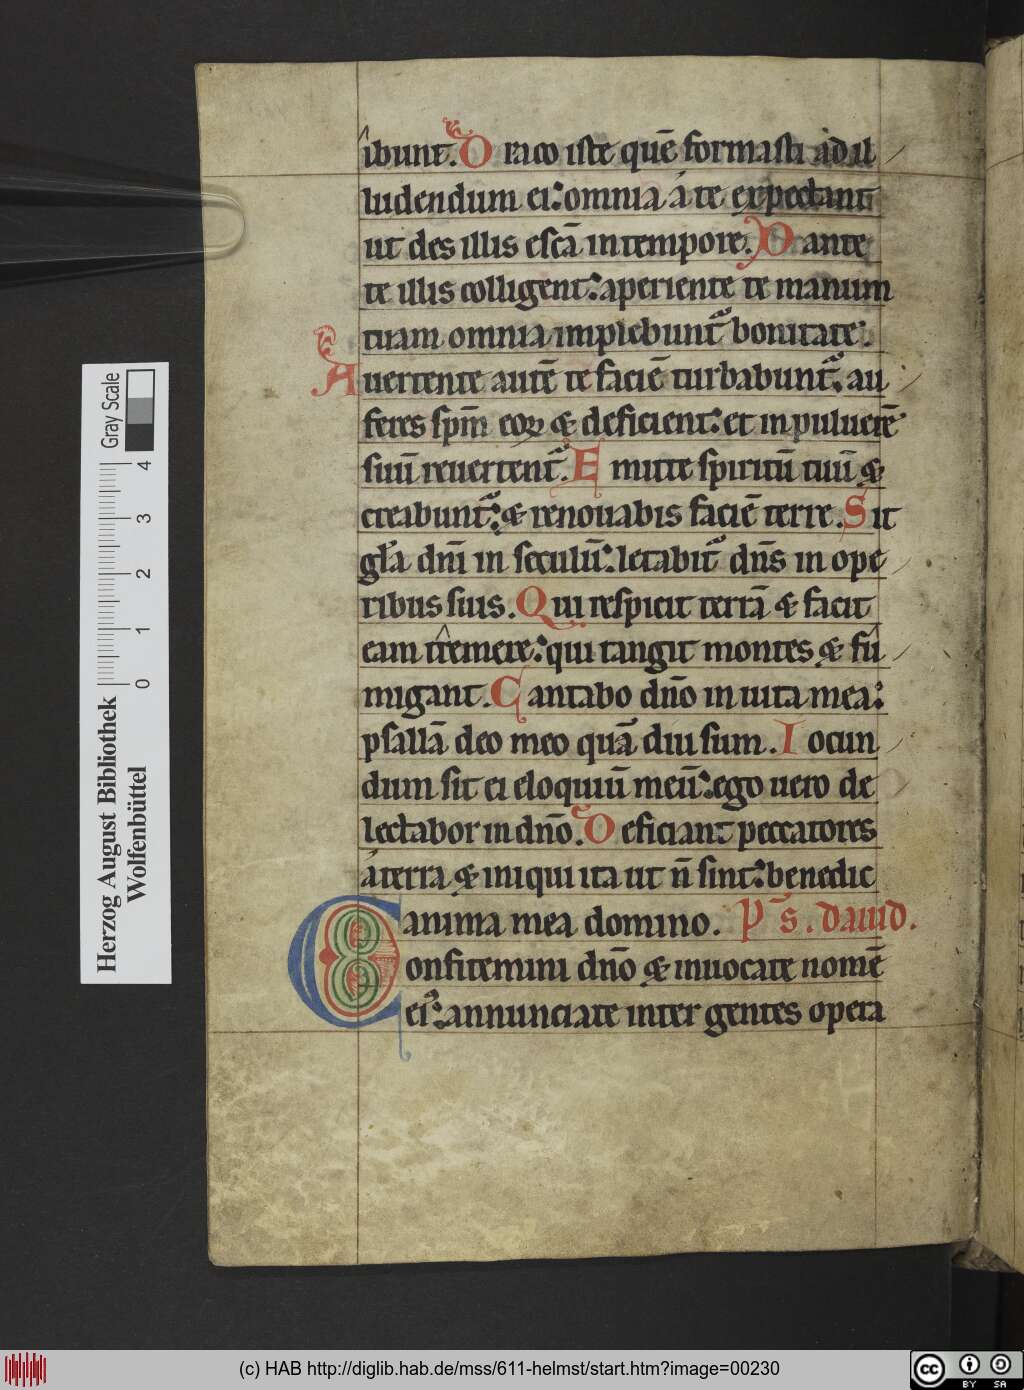 ibunt. Draco iste quē formasti ad il
ludendum ei: omnia a te expectant
ut des illis escā in tempore. Dante
te illis colligent: aperiente te manum
tuam omnia implebunt᷑ bonitate.
Auertente autē te faciē turbabunt᷑. au
feres spm̄ eoꝝ & deficient: et in puluerē
suū reuertent᷑. Emitte spiritū tuū &
creabunt᷑: & renouabis faciē terre. Sit
gl̄a dnī in seculū: letabit᷑ dn̄s in ope
ribus suis. Qui respicit terrā & facit
eam tremere: qui tangit montes & fu
migant. Cantabo dn̄o in uita mea:
psallā deo meo quā diu sum. Iocun
dum sit ei eloquiū meū: ego uero de
lectabor in dn̄o. Deficiant peccatores
a terra & iniqui ita ut n̄ sint: benedic
anima mea domino. Ps. dauid.
Confitemini dn̄o & inuocate nomē
ei᷒: annunciate inter gentes opera
Herzog August Bibliothek
Wolfenbüttel
0 1 2 3 4
Gray Scale
(c) HAB http://diglib.hab.de/mss/611-helmst/start.htm?image=00230
cc BY SA